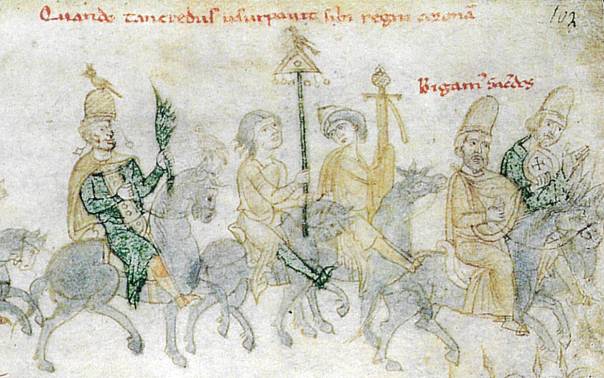 Quando tancredus usurpavit sibi regni coronā
103
Bigam᷒ sac̄dos